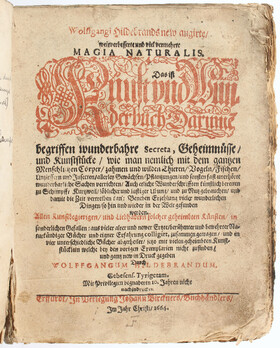 Wolffgangi Hildebrands new augirte/
weitverbesserte und viel vermehrte
MAGIA NATURALIS.
Das ist
Kunst und Wun-
derbuch/Darinne
begriffen wunderbahre Secreta, Geheimnüsse/
und Kunststücke/ wie man nemlich mit dem gantzen
Menschlichen Cörper/ zahmen und wilden Thieren/ Vögeln/ Fischen/
Unziefern und Insecten/ allerley Gewächsen/ Pflantzungen/ und sonsten fast unerhörte
wunderbarliche Sachen verrichten/ Auch etliche Wunderschrifften künstlich bereiten
zu Schimpff/ Kurtzweil/ löblicher und lustiger Ubung/ und zu
damit die Zeit vertreiben kan: Beneben Erzehlung vieler wunderlichen
Dingen so hin und wieder in der Welt gefunden
werden.
Allen Kunstbegierigen/ und Liebhabern solcher geheimten Künsten/ in
sonderlichen Gefallen: aus vieler alter und newer
und eigner Erfahrung colligirt/ zusammen getragen/ und in
vier unterschiedliche Bücher abgetheilet/ itzo mit vielen geheimbten Kunst-
stücklein welche bey den vorigen Exemplarien nicht gefunden/
zum Druck gegeben
Durch
WOLFFGANGUM HILDEBRANDUM,
Gebesens. Tyrigetam.
Mit Privilegien begnadet in 10. Jahren nicht
nachzudrucken.
Erffurdt/ In Verlegung Johann Birckners/ Buchhändlers/
Im Jahr Christi/ 1664.